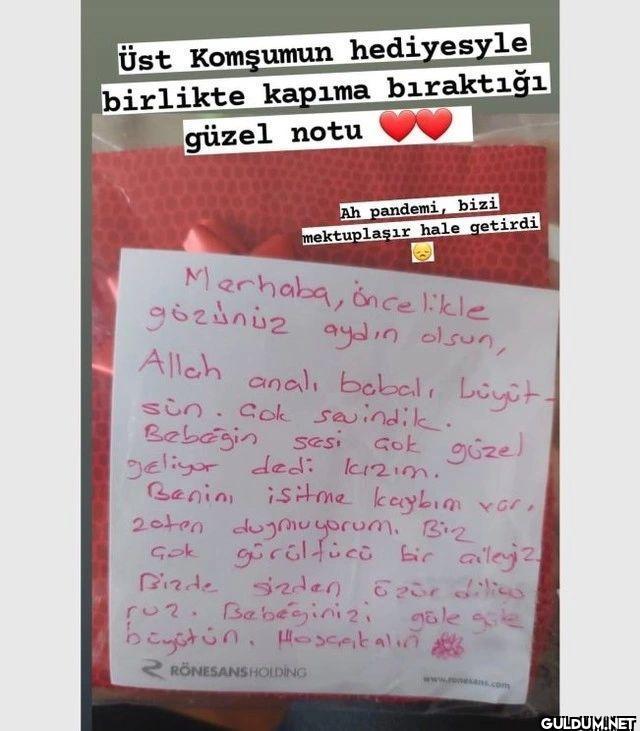 Üst Komşumun hediyesyle
birlikte kapıma bıraktığı
güzel notu ❤️❤️
Ah pandemi, bizi
mektuplaşır hale getirdi
😞
Merhaba, öncelikle
gözünüz aydın olsun,
Allah analı babalı büyüt-
sün. Çok sevindik.
Bebeğin sesi çok güzel
geliyor dedi kızım.
Benim işitme kaybım var,
zaten duymuyorum. Biz
çok gürültücü bir aileyiz.
Bizde sizden özür diliyo
ruz. Bebeğinizi güle güle
büyütün. Hoşçakalın
RÖNESANSHOLDİNG
www.ronesans.com
GULDUM.NET